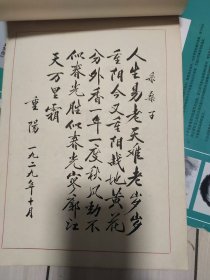 采桑子
人生易老天难老岁岁
重阳今又重阳战地黄花
分外香一年一度秋风劲不
似春光胜似春光寥廓江
天万里霜
重阳 一九二九年十月